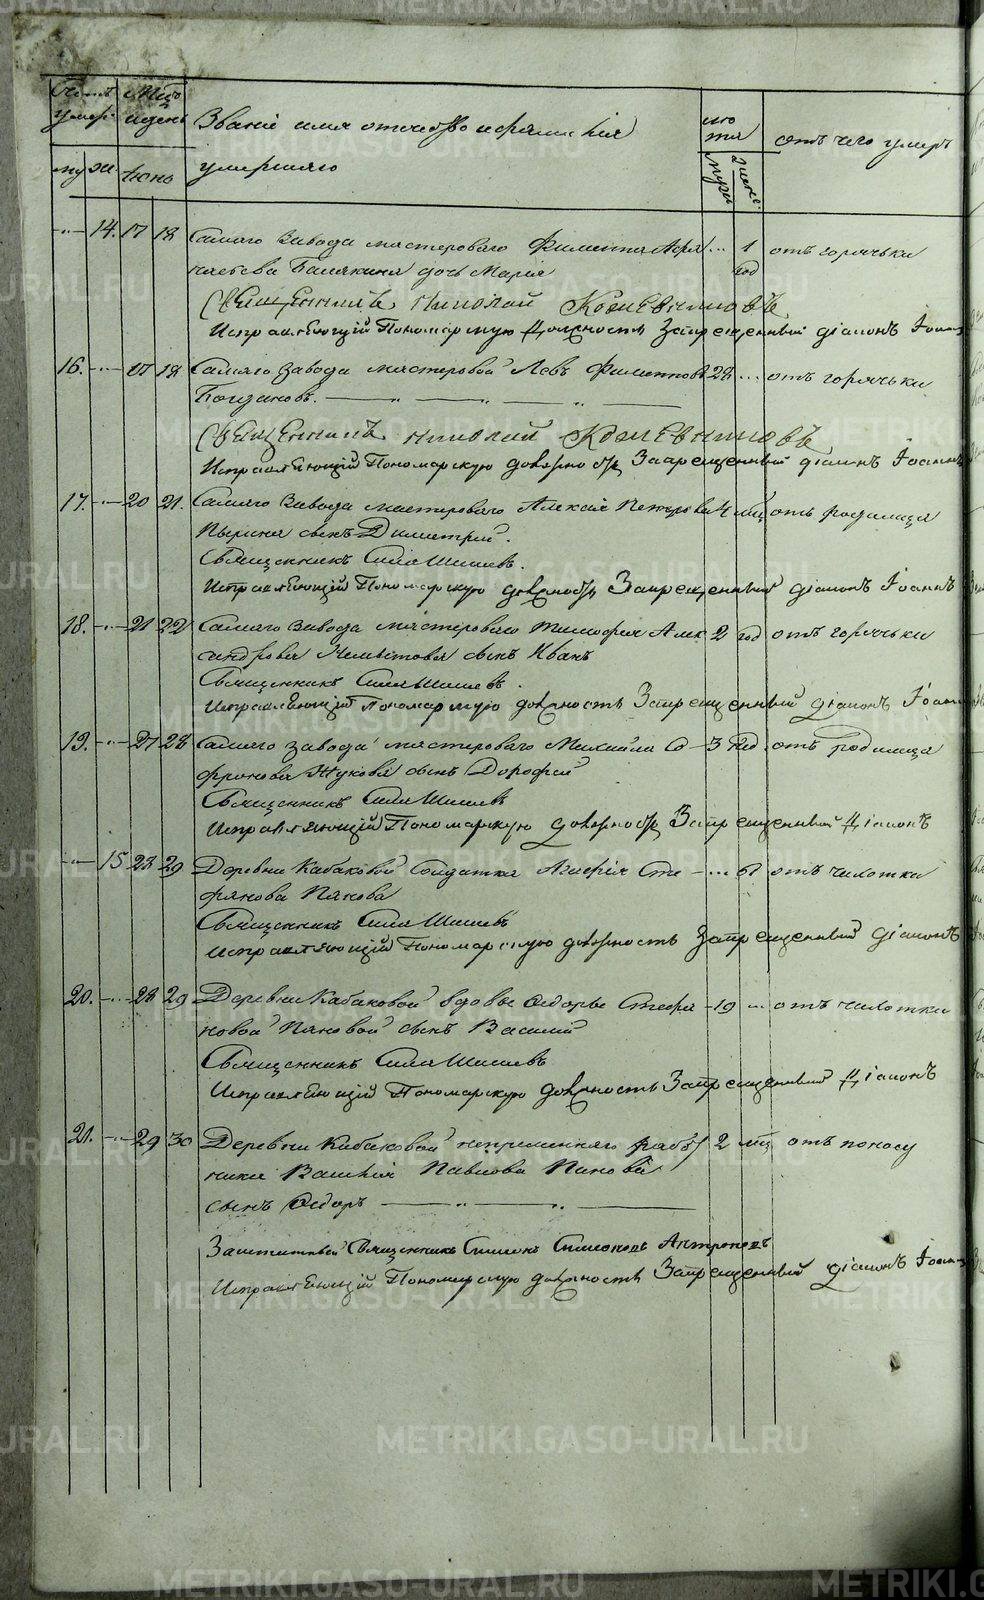 METRIKI.GASO-URAL.RU
Счетъ умер: Мцъ и день Званіе имя отечество и фамилія умершаго лѣта отъ чего умеръ
му же Іюнь муж женс:
14. 17 18 Самаго Завода мастероваго Филиппа
Балякина дочь Марія 1 год отъ горячьки
Священникъ Николай Кожевниковъ
Исправляющій Пономарскую должность Запрещенный діаконъ Іоаннъ
16. 17 18 Самаго завода мастеровой Левъ Филипповъ 28 отъ горячьки
Богдановъ.
Священникъ Николай Кожевниковъ
Исправляющій Пономарскую должность Запрещенный діаконъ Іоаннъ
17. 20 21. Самаго Завода мастероваго Алексія Петрова 4 мцъ отъ родимца
сынъ Димитрий.
Священникъ Сила Шишевъ.
Исправляющій Пономарскую должность Запрещенный діаконъ Іоаннъ
18. 21 22 Самаго Завода мастероваго Тимофея Алек 2 год отъ горячьки
сандрова сынъ Иванъ
Священникъ Сила Шишевъ.
Исправляющій Пономарскую должность Запрещенный діаконъ Іоаннъ
19. 27 28 Самаго завода мастероваго Михайла Со 3 нед отъ родимца
фронова Жукова сынъ Дорофей
Священникъ Сила Шишевъ
Исправляющій Пономарскую должность Запрещенный Діаконъ
15 28 29 Деревни Кабаковой Солдатка Агафія Сте 61 отъ чихотки
фанова Панова
Священникъ Сила Шишевъ
Исправляющій Пономарскую должность Запрещенный діаконъ
20. 28 29 Деревни Кабаковой вдовы Ѳедорьи Стефа 19 отъ чихотки
новой Пановой сынъ Василий
Священникъ Сила Шишевъ
Исправляющій Пономарскую должность Запрещенный Діаконъ
21. 29 30 Деревни Кабаковой непременнаго работ 2 мцъ отъ поносу
ника Павлова Панова
сынъ Ѳедоръ
Заштатный Священникъ Симеонъ Симеоновъ Антроповъ
Исправляющій Пономарскую должность Запрещенный діаконъ Іоаннъ
METRIKI.GASO-URAL.RU